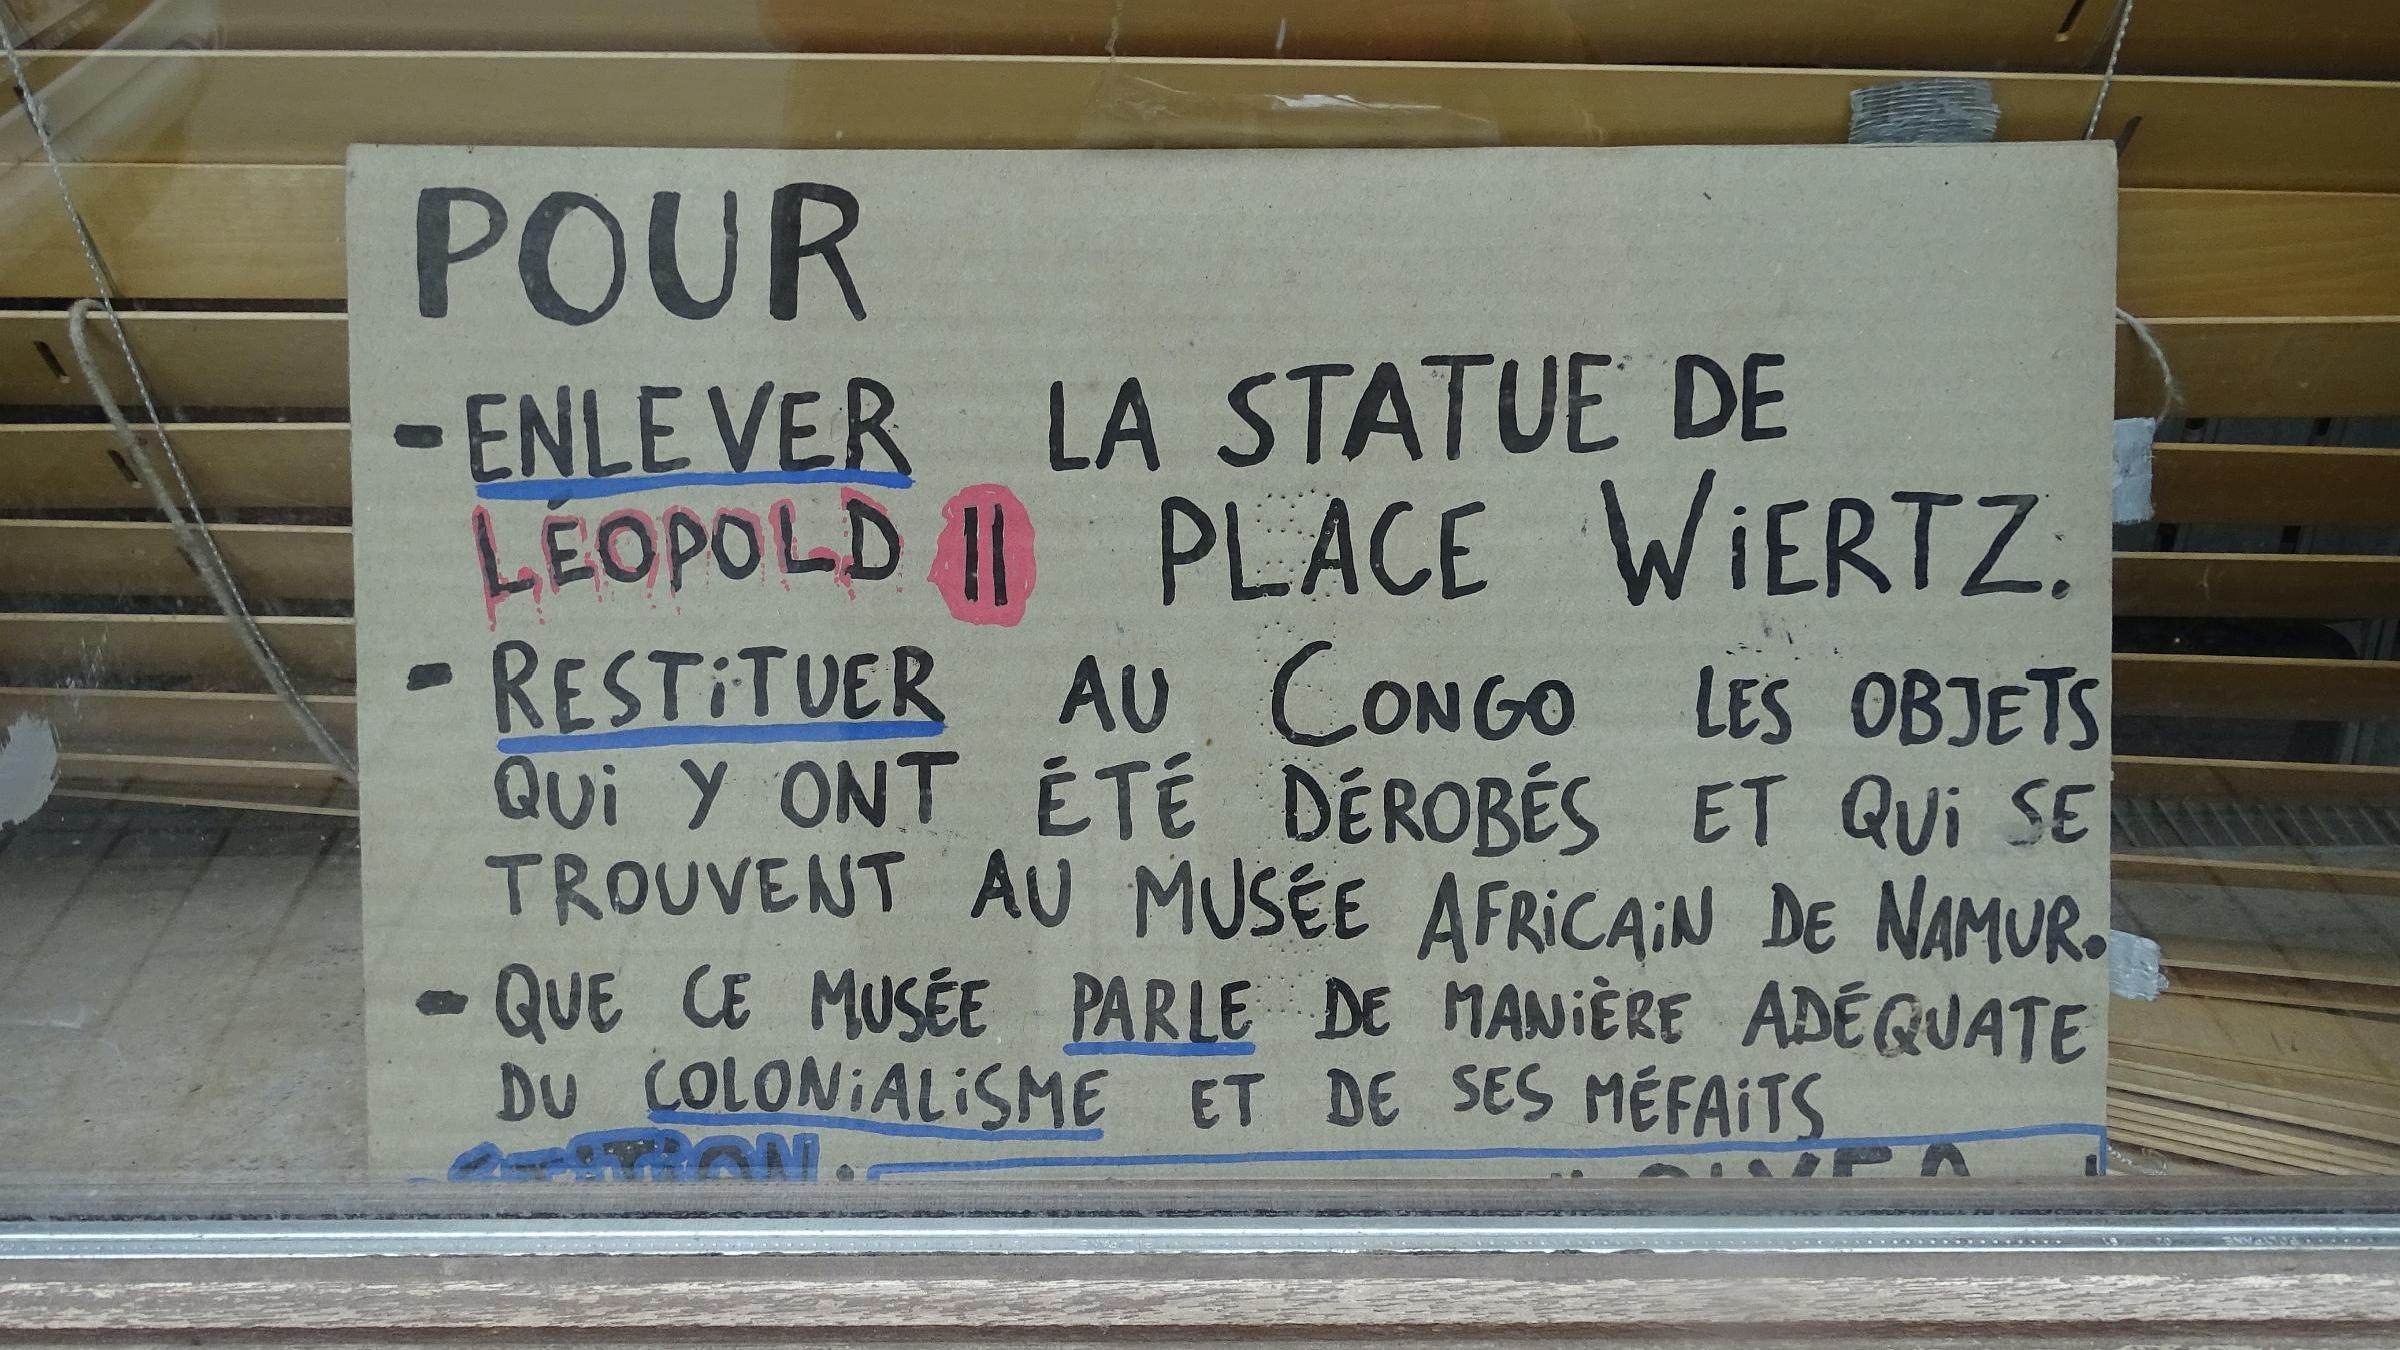 POUR
- ENLEVER LA STATUE DE
LÉOPOLD II PLACE WiERTZ.
- RESTiTUER AU CONGO LES OBJETS
QUi Y ONT ÉTÉ DÉROBÉS ET QUi SE
TROUVENT AU MUSÉE AFRiCAiN DE NAMUR.
- QUE CE MUSÉE PARLE DE MANiÈRE ADÉQUATE
DU COLONiALiSME ET DE SES MÉFAiTS